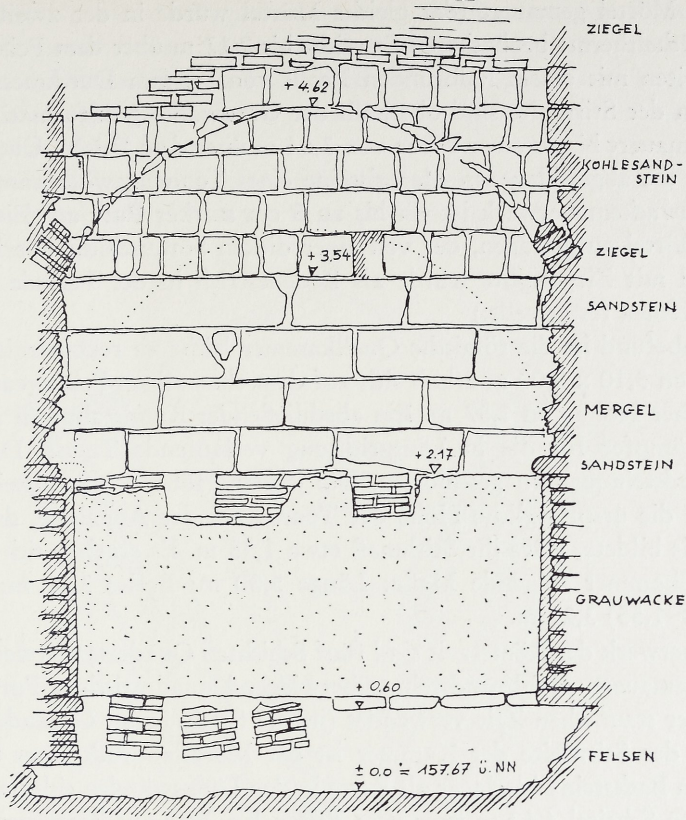 ZIEGEL
+ 4.62
KOHLESAND-
STEIN
+ 3,54
ZIEGEL
SANDSTEIN
MERGEL
+ 2.17
SANDSTEIN
GRAUWACKE
+ 0.60
FELSEN
± 0.0 = 157.67 ü.NN